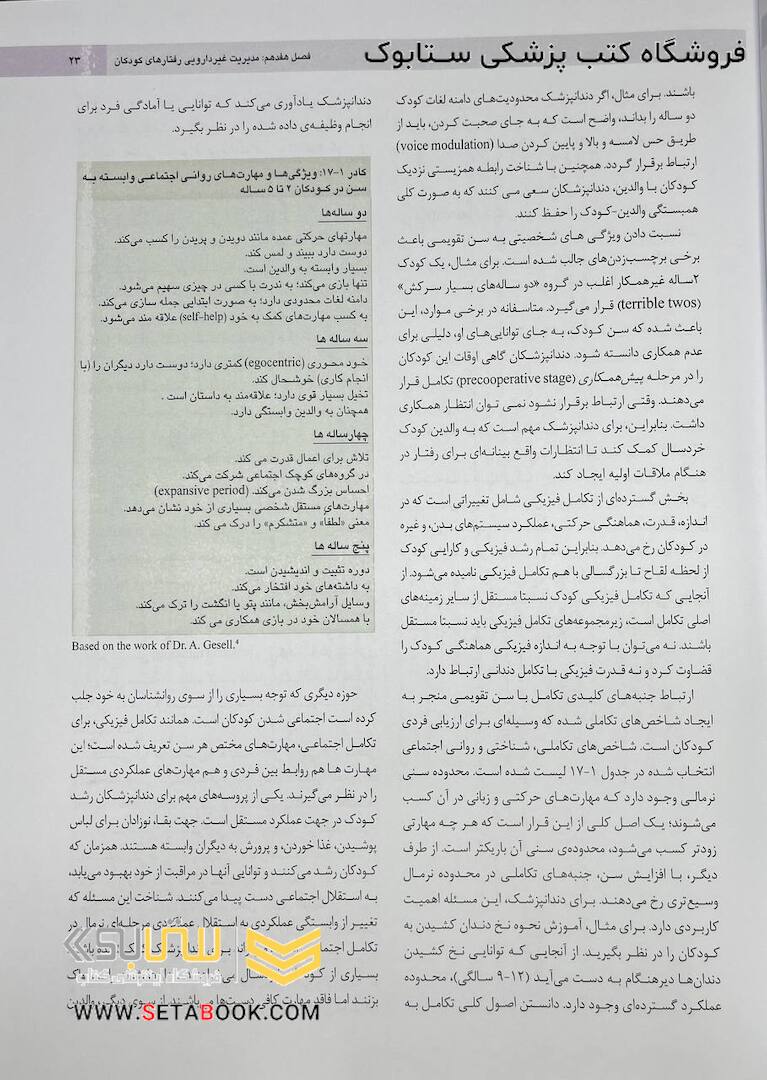 فروشگاه کتب پزشکی ستابوک
فصل هفدهم: مدیریت غیردارویی رفتارهای کودکان
۲۳
باشند. برای مثال، اگر دندانپزشک محدودیت‌های دامنه لغات کودک
دو ساله را بداند، واضح است که به جای صحبت کردن، باید از
طریق حس لامسه و بالا و پایین کردن صدا (voice modulation)
ارتباط برقرار گردد. همچنین با شناخت رابطه همزیستی نزدیک
کودکان با والدین، دندانپزشکان سعی می کنند که به صورت کلی
همبستگی والدین-کودک را حفظ کنند.
نسبت دادن ویژگی های شخصیتی به سن تقویمی باعث
برخی برچسب‌زدن‌های جالب شده است. برای مثال، یک کودک
۲ساله غیرهمکار اغلب در گروه «دو ساله‌های بسیار سرکش»
(terrible twos) قرار می‌گیرد. متاسفانه در برخی موارد، این
باعث شده که سن کودک، به جای توانایی‌های او، دلیلی برای
عدم همکاری دانسته شود. دندانپزشکان گاهی اوقات این کودکان
را در مرحله پیش‌همکاری (precooperative stage) تکامل قرار
می‌دهند. وقتی ارتباط برقرار نشود نمی توان انتظار همکاری
داشت. بنابراین، برای دندانپزشک مهم است که به والدین کودک
خردسال کمک کند تا انتظارات واقع بینانه‌ای برای رفتار در
هنگام ملاقات اولیه ایجاد کند.
بخش گسترده‌ای از تکامل فیزیکی شامل تغییراتی است که در
اندازه، قدرت، هماهنگی حرکتی، عملکرد سیستم‌های بدن، و غیره
در کودکان رخ می‌دهد. بنابراین تمام رشد فیزیکی و کارایی کودک
از لحظه لقاح تا بزرگسالی با هم تکامل فیزیکی نامیده می‌شود. از
آنجایی که تکامل فیزیکی کودک نسبتا مستقل از سایر زمینه‌های
اصلی تکامل است، زیرمجموعه‌های تکامل فیزیکی باید نسبتا مستقل
باشند. نه می‌توان با توجه به اندازه فیزیکی هماهنگی کودک را
قضاوت کرد و نه قدرت فیزیکی با تکامل دندانی ارتباط دارد.
ارتباط جنبه‌های کلیدی تکامل با سن تقویمی منجر به
ایجاد شاخص‌های تکاملی شده که وسیله‌ای برای ارزیابی فردی
کودکان است. شاخص‌های تکاملی، شناختی و روانی اجتماعی
انتخاب شده در جدول ۱-۱۷ لیست شده است. محدوده سنی
نرمالی وجود دارد که مهارت‌های حرکتی و زبانی در آن کسب
می‌شوند؛ یک اصل کلی از این قرار است که هر چه مهارتی
زودتر کسب می‌شود، محدوده‌ی سنی آن باریکتر است. از طرف
دیگر، با افزایش سن، جنبه‌های تکاملی در محدوده نرمال
وسیع‌تری رخ می‌دهند. برای دندانپزشک، این مسئله اهمیت
کاربردی دارد. برای مثال، آموزش نحوه نخ دندان کشیدن به
کودکان را در نظر بگیرید. از آنجایی که توانایی نخ کشیدن
دندان‌ها دیرهنگام به دست می‌آید (۱۲-۹ سالگی)، محدوده
عملکرد گسترده‌ای وجود دارد. دانستن اصول کلی تکامل به
دندانپزشک یادآوری می‌کند که توانایی یا آمادگی فرد برای
انجام وظیفه‌ی داده شده را در نظر بگیرد.
کادر ۱-۱۷: ویژگی‌ها و مهارت‌های روانی اجتماعی وابسته به
سن در کودکان ۲ تا ۵ ساله
دو ساله‌ها
مهارتهای حرکتی عمده مانند دویدن و پریدن را کسب می‌کند.
دوست دارد ببیند و لمس کند.
بسیار وابسته به والدین است.
تنها بازی می‌کند؛ به ندرت با کسی در چیزی سهیم می‌شود.
دامنه لغات محدودی دارد؛ به صورت ابتدایی جمله سازی می‌کند.
به کسب مهارت‌های کمک به خود (self-help) علاقه مند می‌شود.
سه ساله ها
خود محوری (egocentric) کمتری دارد؛ دوست دارد دیگران را (با
انجام کاری) خوشحال کند.
تخیل بسیار قوی دارد؛ علاقه‌مند به داستان است .
همچنان به والدین وابستگی دارد.
چهارساله ها
تلاش برای اعمال قدرت می کند.
در گروه‌های کوچک اجتماعی شرکت می‌کند.
احساس بزرگ شدن می‌کند. (expansive period)
مهارت‌های مستقل شخصی بسیاری از خود نشان می‌دهد.
معنی «لطفا» و «متشکرم» را درک می کند.
پنج ساله ها
دوره تثبیت و اندیشیدن است.
به داشته‌های خود افتخار می‌کند.
وسایل آرامش‌بخش، مانند پتو یا انگشت را ترک می‌کند.
با همسالان خود در بازی همکاری می کند.
Based on the work of Dr. A. Gesell.4
حوزه دیگری که توجه بسیاری را از سوی روانشناسان به خود جلب
کرده است اجتماعی شدن کودکان است. همانند تکامل فیزیکی، برای
تکامل اجتماعی، مهارت‌های مختص هر سن تعریف شده است؛ این
مهارت ها هم روابط بین فردی و هم مهارت‌های عملکردی مستقل
را در نظر می‌گیرند. یکی از پروسه‌های مهم برای دندانپزشکان رشد
کودک در جهت عملکرد مستقل است. جهت بقا، نوزادان برای لباس
پوشیدن، غذا خوردن، و پرورش به دیگران وابسته هستند. همزمان که
کودکان رشد می‌کنند و توانایی آنها در مراقبت از خود بهبود می‌یابد،
به استقلال اجتماعی دست پیدا می‌کنند. شناخت این مسئله که
تغییر از وابستگی عملکردی به استقلال عملکردی مرحله‌ای نرمال در
تکامل اجتماعی
بسیاری از
بزنند اما فاقد مهارت کافی دست‌ها می‌باشند. از سوی دیگر، والدین
ستابوک
فروشگاه اینترنتی کتاب
WWW.SETABOOK.COM